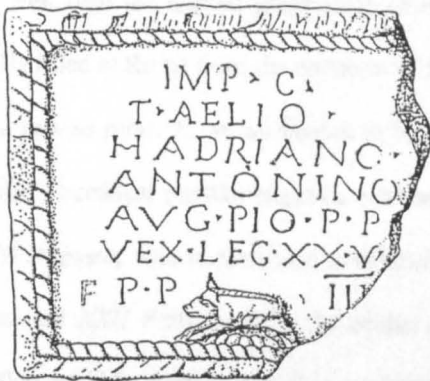 IMP · C ·
T · AELIO ·
HADRIANO
ANTONINO
AVG · PIO · P · P
VEX · LEG · XX · V
F P · P III